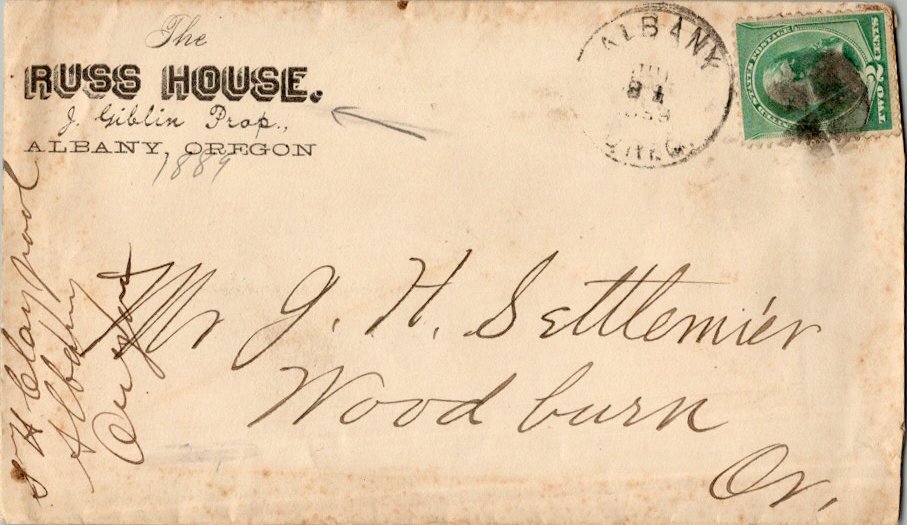 The
RUSS HOUSE.
J. Giblin Prop.,
ALBANY, OREGON
1889
ALBANY
OREG.
UNITED STATES POSTAGE
2
TWO CENTS
Mr J. H. Settlemier
Woodburn
Or.
H Claypool
Albany